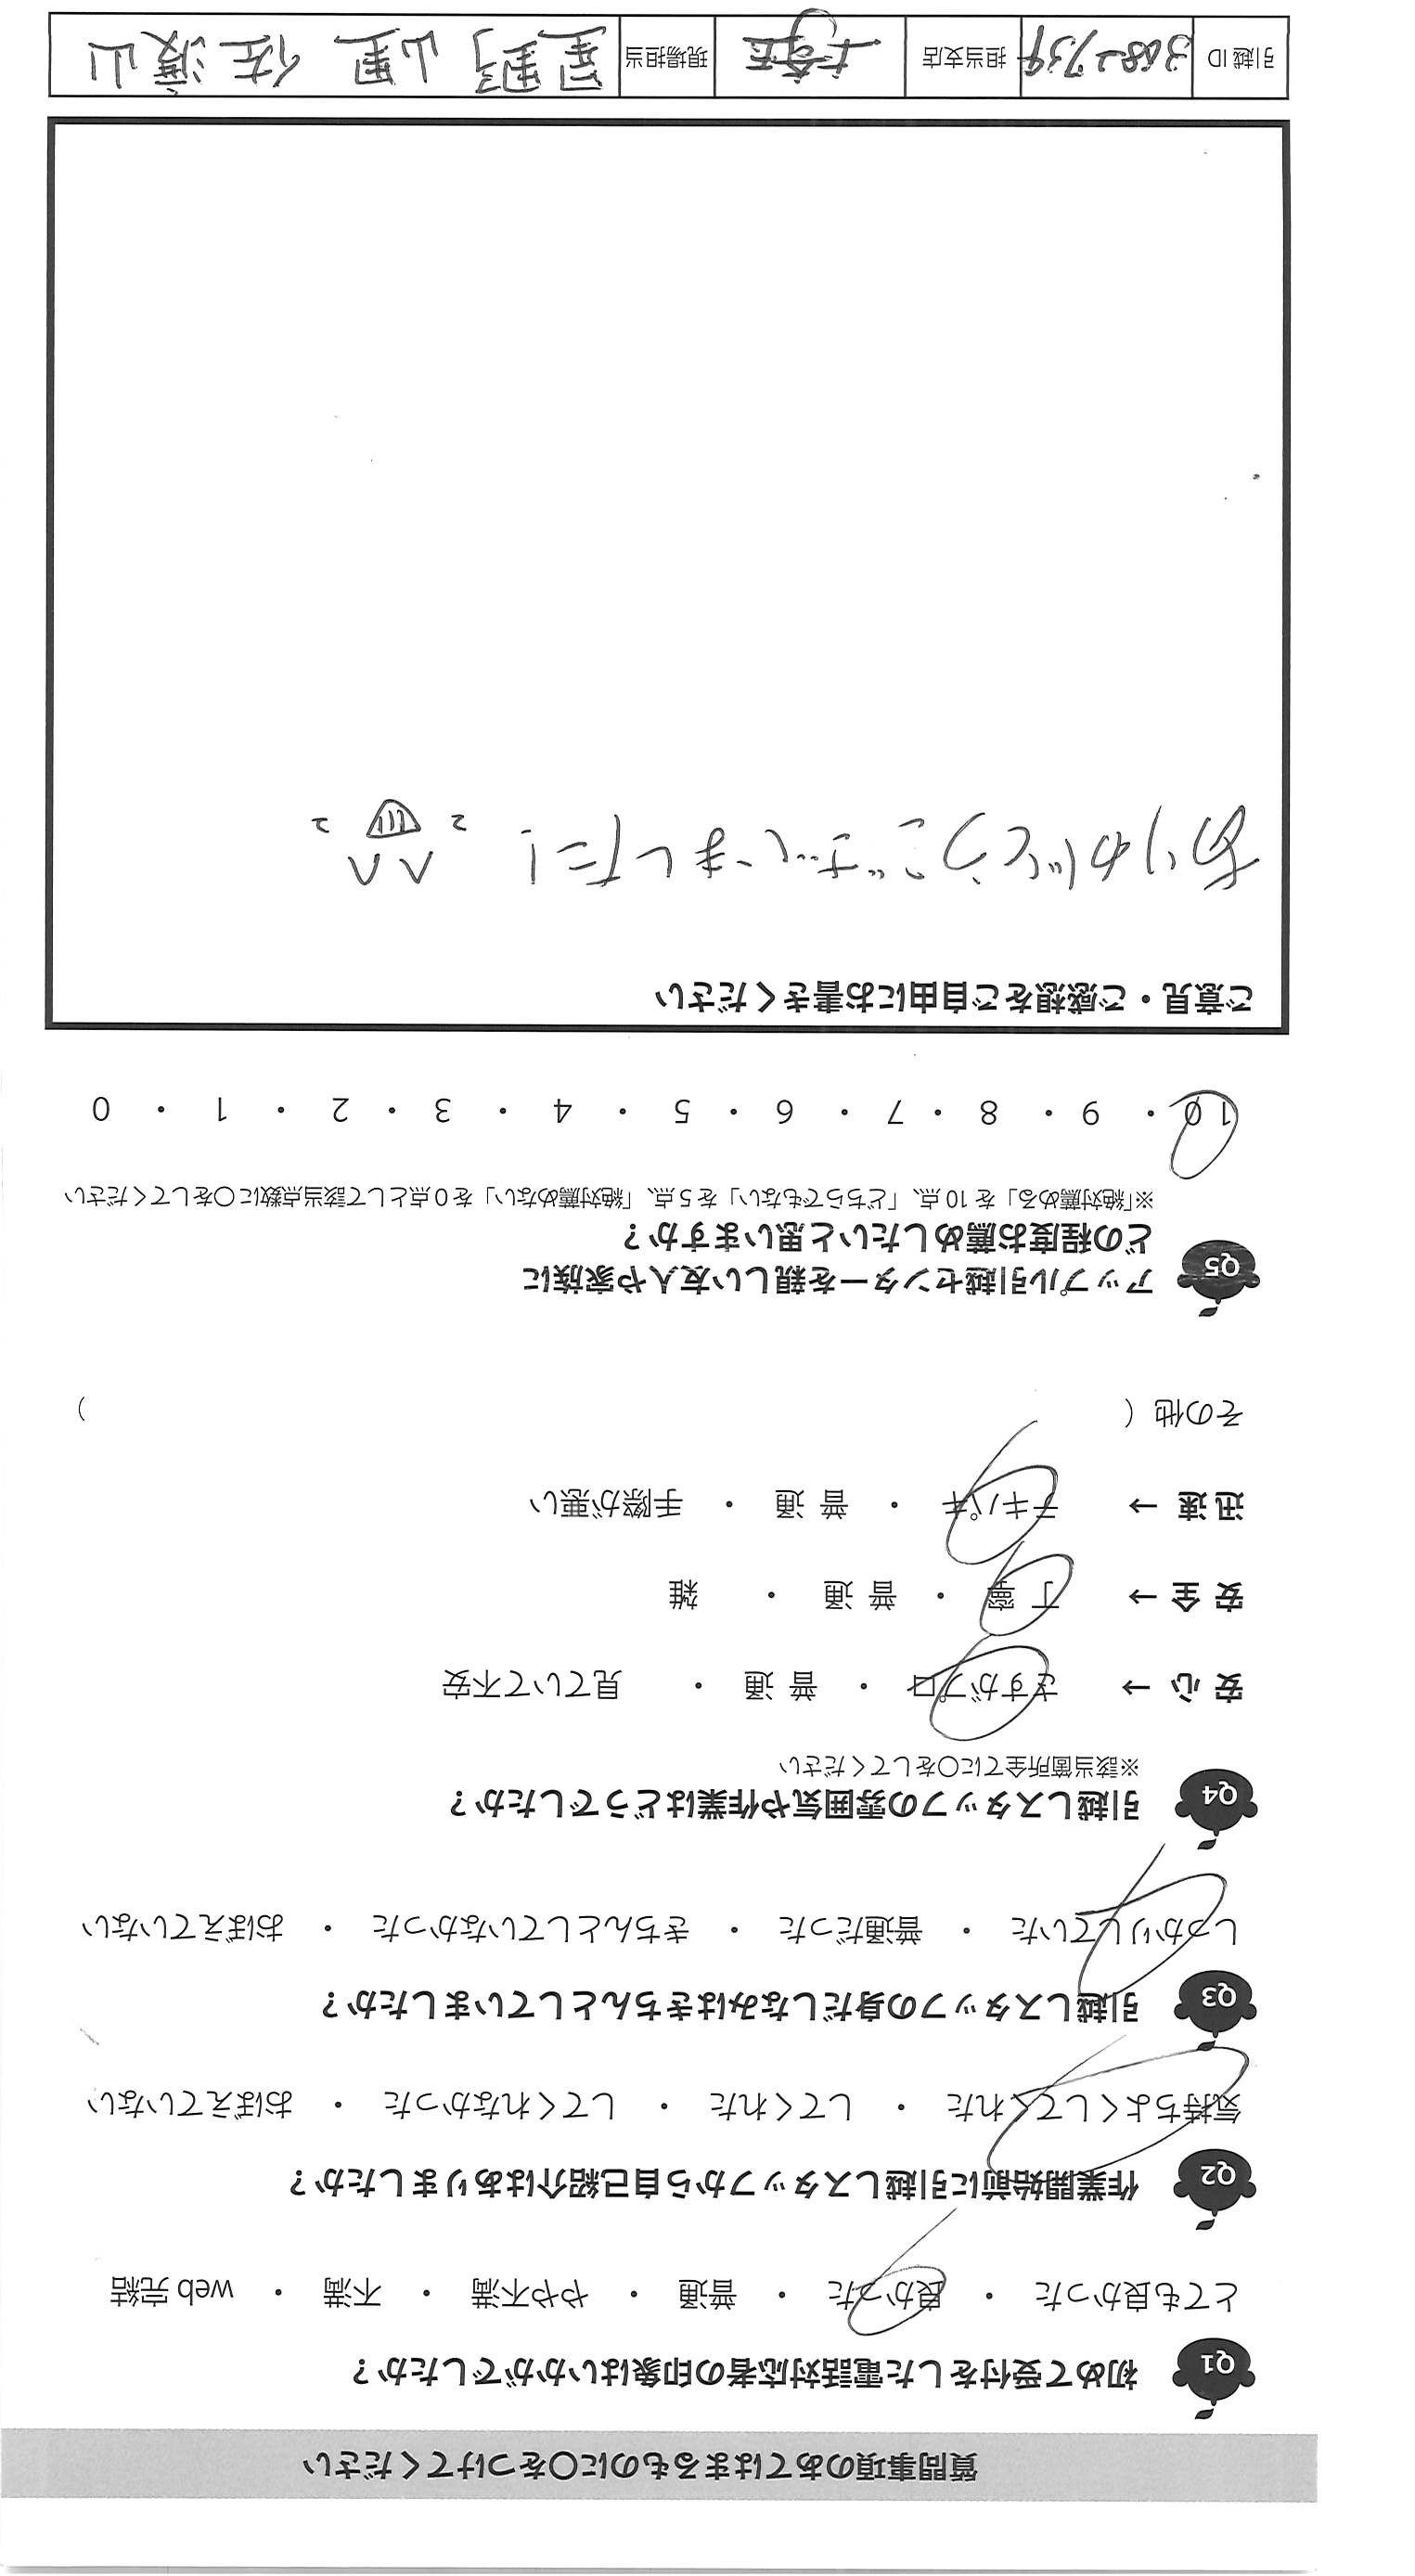 質問事項のあてはまるものに〇をつけてください
Q1 初めて受付をした電話対応者の印象はいかがでしたか？
とても良かった ・ 良かった ・ 普通 ・ やや不満 ・ 不満 ・ web 完結
Q2 作業開始前に引越しスタッフから自己紹介はありましたか？
気持ちよくしてくれた ・ してくれた ・ してくれなかった ・ おぼえていない
Q3 引越しスタッフの身だしなみはきちんとしていましたか？
しっかりしていた ・ 普通だった ・ きちんとしていなかった ・ おぼえていない
Q4 引越しスタッフの雰囲気や作業はどうでしたか？
※該当箇所全てに〇をしてください
安 心 → さすがプロ ・ 普 通 ・ 見ていて不安
安 全 → 丁 寧 ・ 普 通 ・ 雑
迅 速 → テキパキ ・ 普 通 ・ 手際が悪い
その他（ ）
Q5 アップル引越センターを親しい友人や家族に
どの程度お薦めしたいと思いますか？
※「絶対薦める」を 10 点、「どちらでもない」を 5 点、「絶対薦めない」を 0 点として該当点数に〇をしてください
10 ・ 9 ・ 8 ・ 7 ・ 6 ・ 5 ・ 4 ・ 3 ・ 2 ・ 1 ・ 0
ご意見・ご感想をご自由にお書きください
ありがとうございました!
引越 ID 3682739 担当支店 現場担当 星野 山里 佐渡山